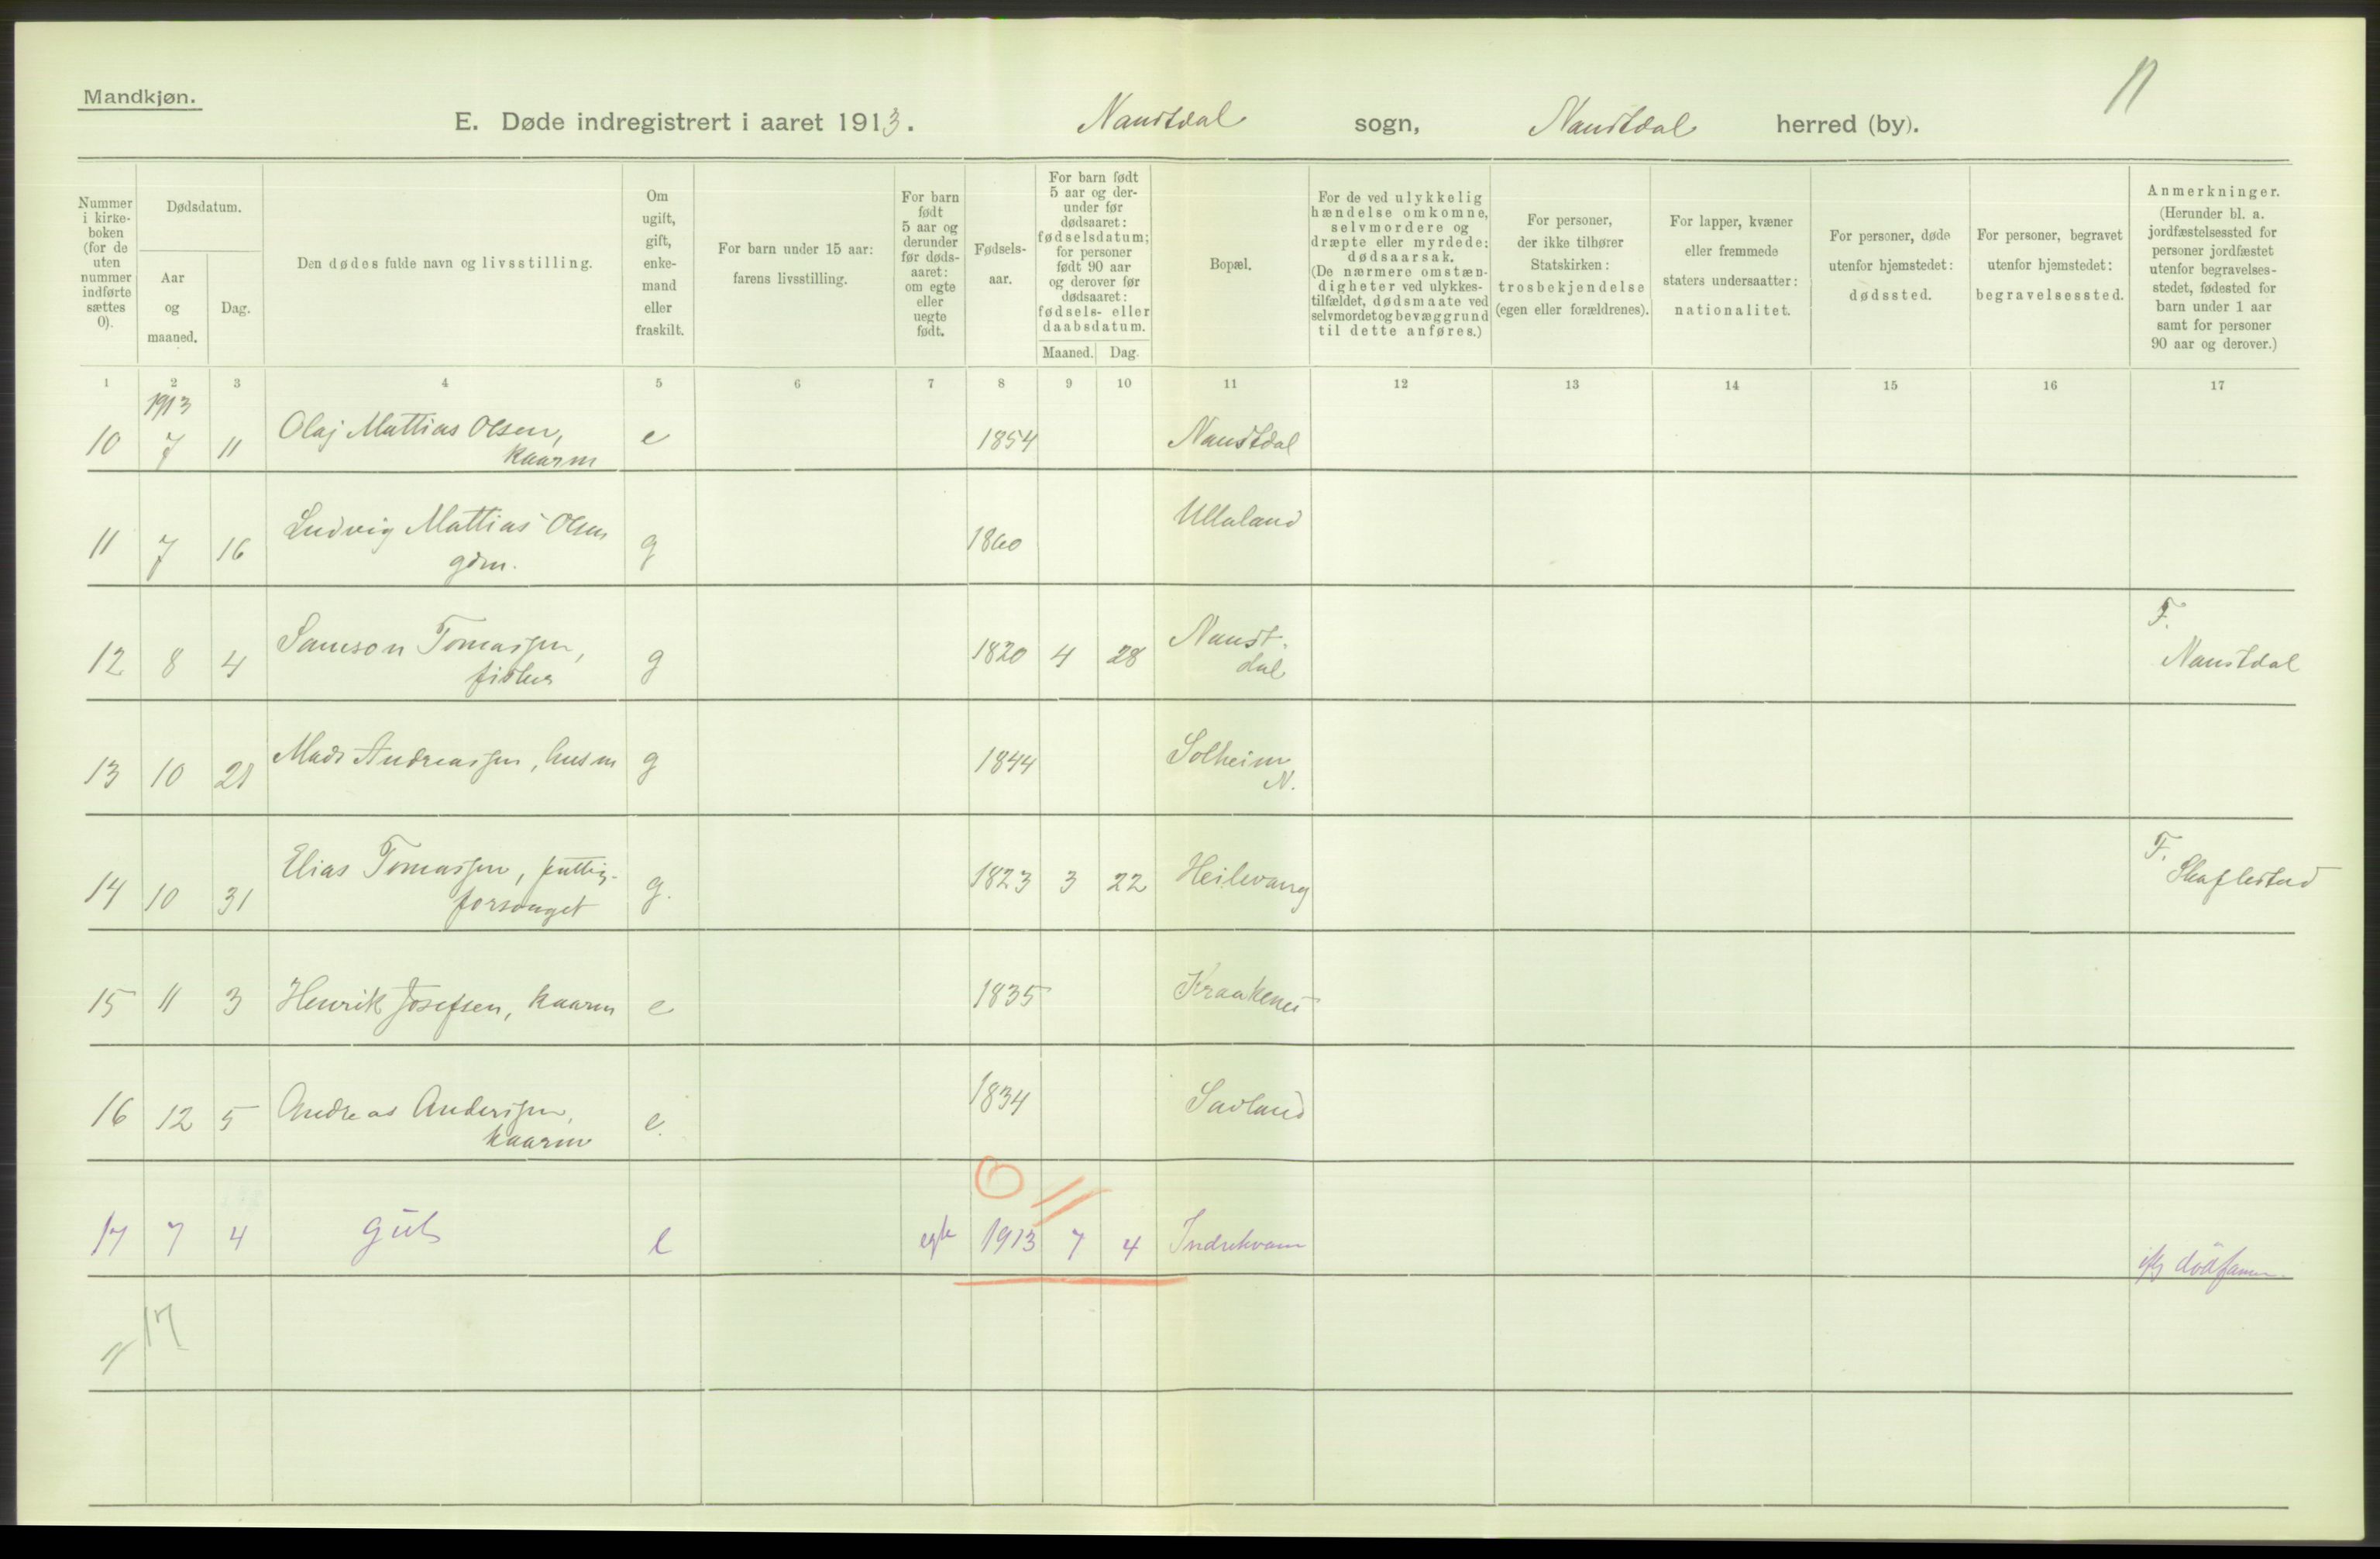 Mandkjøn.
E. Døde indregistrert i aaret 1913. Naustdal sogn, Naustdal herred (by).
Nummer i kirke-boken (for de uten nummer indførte sættes 0).
Dødsdatum.
Aar og maaned.
Dag.
Den dødes fulde navn og livsstilling.
Om ugift, gift, enke-mand eller fraskilt.
For barn under 15 aar: farens livsstilling.
For barn født 5 aar og derunder før døds-aaret: om egte eller uegte født.
Fødsels-aar.
For barn født 5 aar og der-under før dødsaaret: fødselsdatum; for personer født 90 aar og derover før dødsaaret: fødsels- eller daabsdatum.
Maaned. Dag.
Bopæl.
For de ved ulykkelig hændelse omkomne, selvmordere og dræpte eller myrdede: dødsaarsak. (De nærmere omstæn-digheter ved ulykkes-tilfældet, dødsmaate ved selvmordet og bevæggrund til dette anføres.)
For personer, der ikke tilhører Statskirken: trosbekjendelse (egen eller forældrenes).
For lapper, kvæner eller fremmede staters undersaatter: nationalitet.
For personer, døde utenfor hjemstedet: dødssted.
For personer, begravet utenfor hjemstedet: begravelsessted.
Anmerkninger. (Herunder bl. a. jordfæstelsessted for personer jordfæstet utenfor begravelses-stedet, fødested for barn under 1 aar samt for personer 90 aar og derover.)
1 2 3 4 5 6 7 8 9 10 11 12 13 14 15 16 17
1913
10 7 11 Olaj Mattias Olsen, e 1854 Naustdal
kaarm
11 7 16 Ludvig Mattias Olsen g 1860 Ullaland
gdm.
12 8 4 Samson Tomassen, g 1820 4 28 Naust- F.
fisker dal Naustdal
13 10 21 Mads Andreassen, husm g 1844 Solheim
N.
14 10 31 Elias Tomassen, fattig- g. 1823 3 22 Heilevang F.
forsørget
15 11 3 Henrik Josefsen, kaarm e 1835 Kraakenes
16 12 5 Andreas Anderssen, e. 1834 Savland
kaarm
17 7 4 gut e egte 1913 7 4 Indrekvam
17